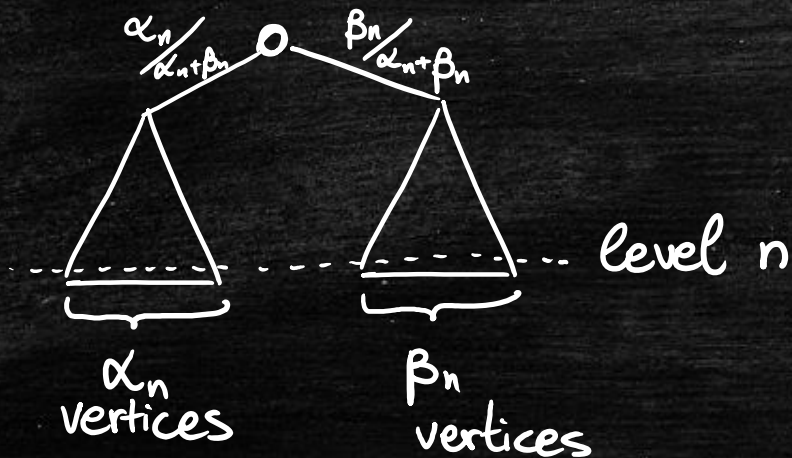 αₙ/αₙ+βₙ
βₙ/αₙ+βₙ
level n
αₙ
vertices
βₙ
vertices